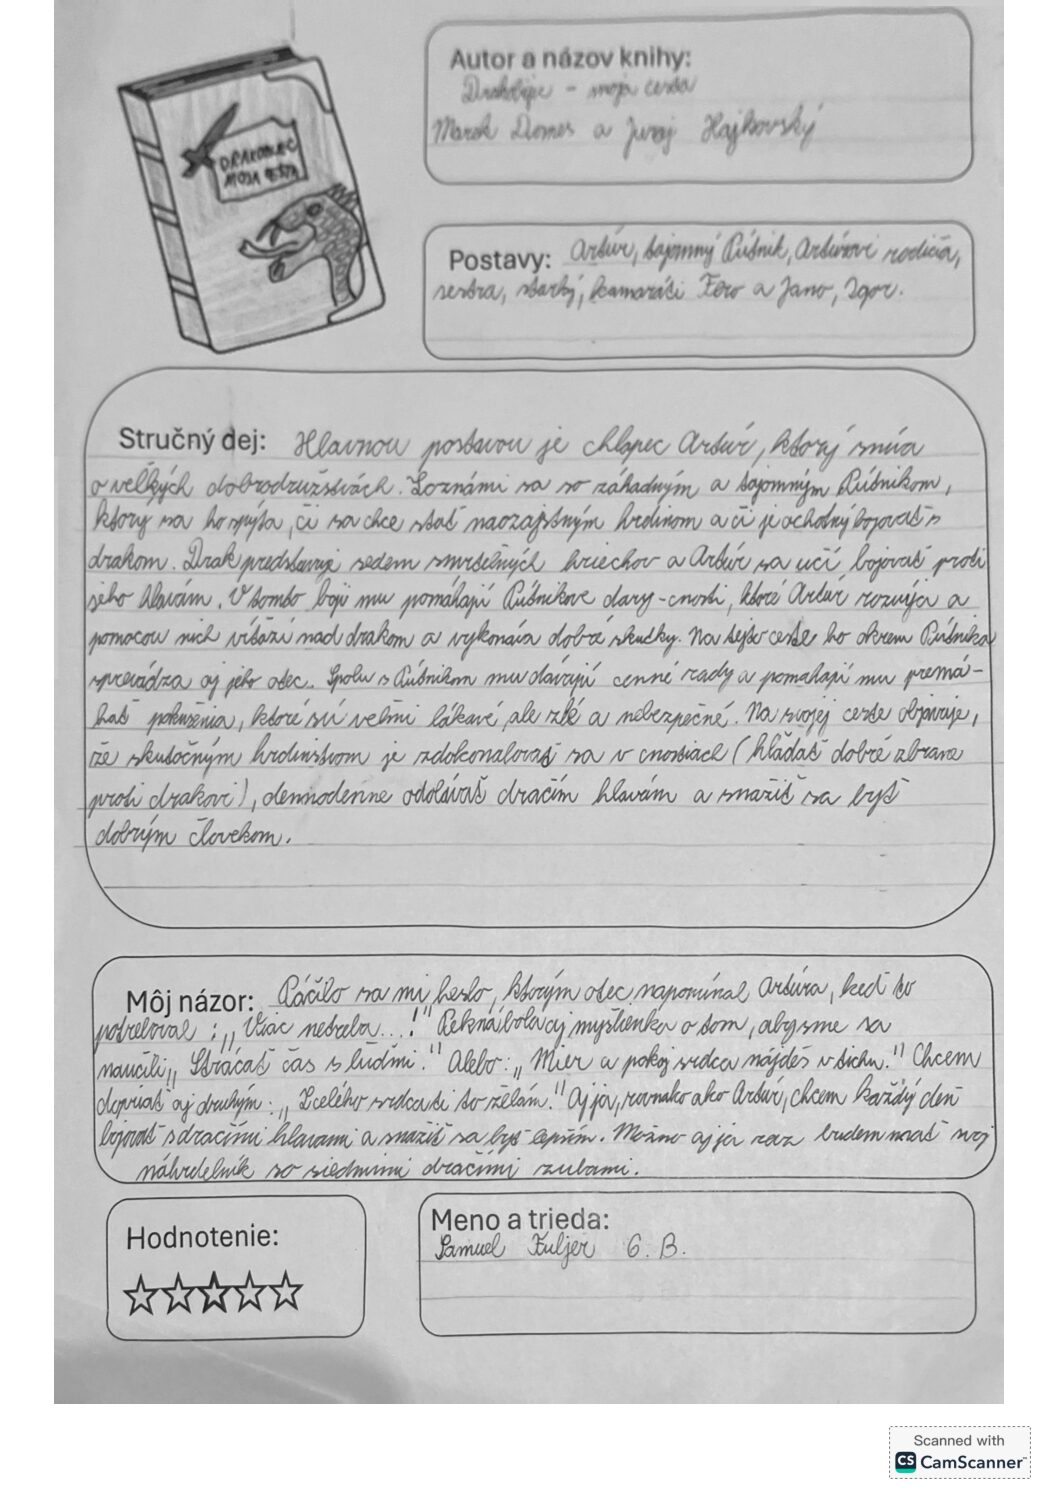 DRAKOBIJEC
MOJA CESTA
Autor a názov knihy:
Drakobijec - moja cesta
Marek Domes a Juraj Hajkovský
Postavy: Artúr, tajomný Pútnik, Artúrovi rodičia,
sestra, starký, kamaráti Fero a Jano, Igor.
Stručný dej: Hlavnou postavou je chlapec Artúr, ktorý sníva
o veľkých dobrodružstvách. Zoznámi sa so záhadným a tajomným Pútnikom,
ktorý sa ho spýta, či sa chce stať naozajstným hrdinom a či je ochotný bojovať s
drakom. Drak predstavuje sedem smrteľných hriechov a Artúr sa učí bojovať proti
jeho hlavám. V tomto boji mu pomáhajú Pútnikove dary-cnosti, ktoré Artúr rozvíja a
pomocou nich víťazí nad drakom a vykonáva dobré skutky. Na tejto ceste ho okrem Pútnika
sprevádza aj jeho otec. Spolu s Pútnikom mu dávajú cenné rady a pomáhajú mu premá-
hať pokušenia, ktoré sú veľmi lákavé, ale zlé a nebezpečné. Na svojej ceste objavuje,
že skutočným hrdinstvom je zdokonaľovať sa v cnostiach (hľadať dobré zbrane
proti drakovi), dennodenne odolávať dračím hlavám a snažiť sa byť
dobrým človekom.
Môj názor: Páčilo sa mi heslo, ktorým otec napomínal Artúra, keď to
potreboval : „Viac netreba...!" Pekná bola aj myšlienka o tom, aby sme sa
naučili „Strácať čas s ľuďmi." Alebo: „Mier a pokoj srdca nájdeš v tichu." Chcem
dopriať aj druhým: „Z celého srdca ti to želám." Aj ja, rovnako ako Artúr, chcem každý deň
bojovať s dračími hlavami a snažiť sa byť lepším. Možno aj ja raz budem mať svoj
náhrdelník so siedmimi dračími zubami.
Hodnotenie:
Meno a trieda:
Samuel Fuljer 6. B.
Scanned with
CS CamScanner